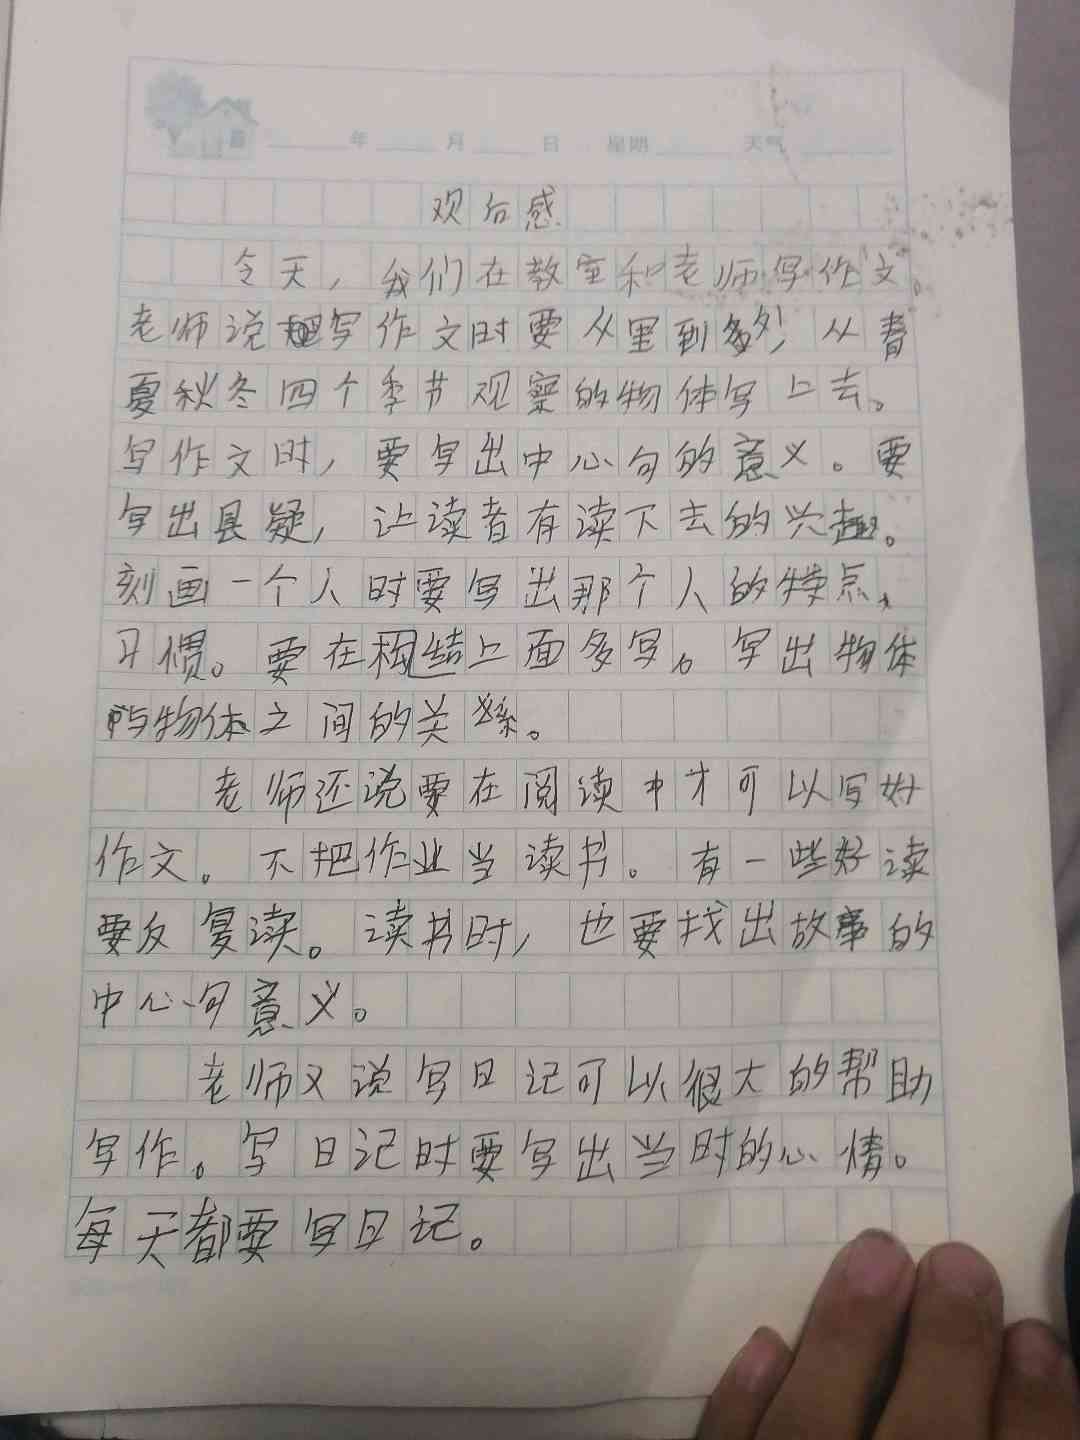 年 月 日 星期 天气
观后感
今天，我们在教室和老师写作文。
老师说写作文时要从里到外，从春
夏秋冬四个季节观察的物体写上去。
写作文时，要写出中心句的意义。要
写出县疑，让读者有读下去的兴趣。
刻画一个人时要写出那个人的特点、
习惯。要在构结上面多写。写出物体
与物体之间的关系。
老师还说要在阅读中才可以写好
作文。不把作业当读书。有一些好读
要反复读。读书时，也要找出故事的
中心句意义。
老师又说写日记可以很大的帮助
写作。写日记时要写出当时的心情。
每天都要写日记。